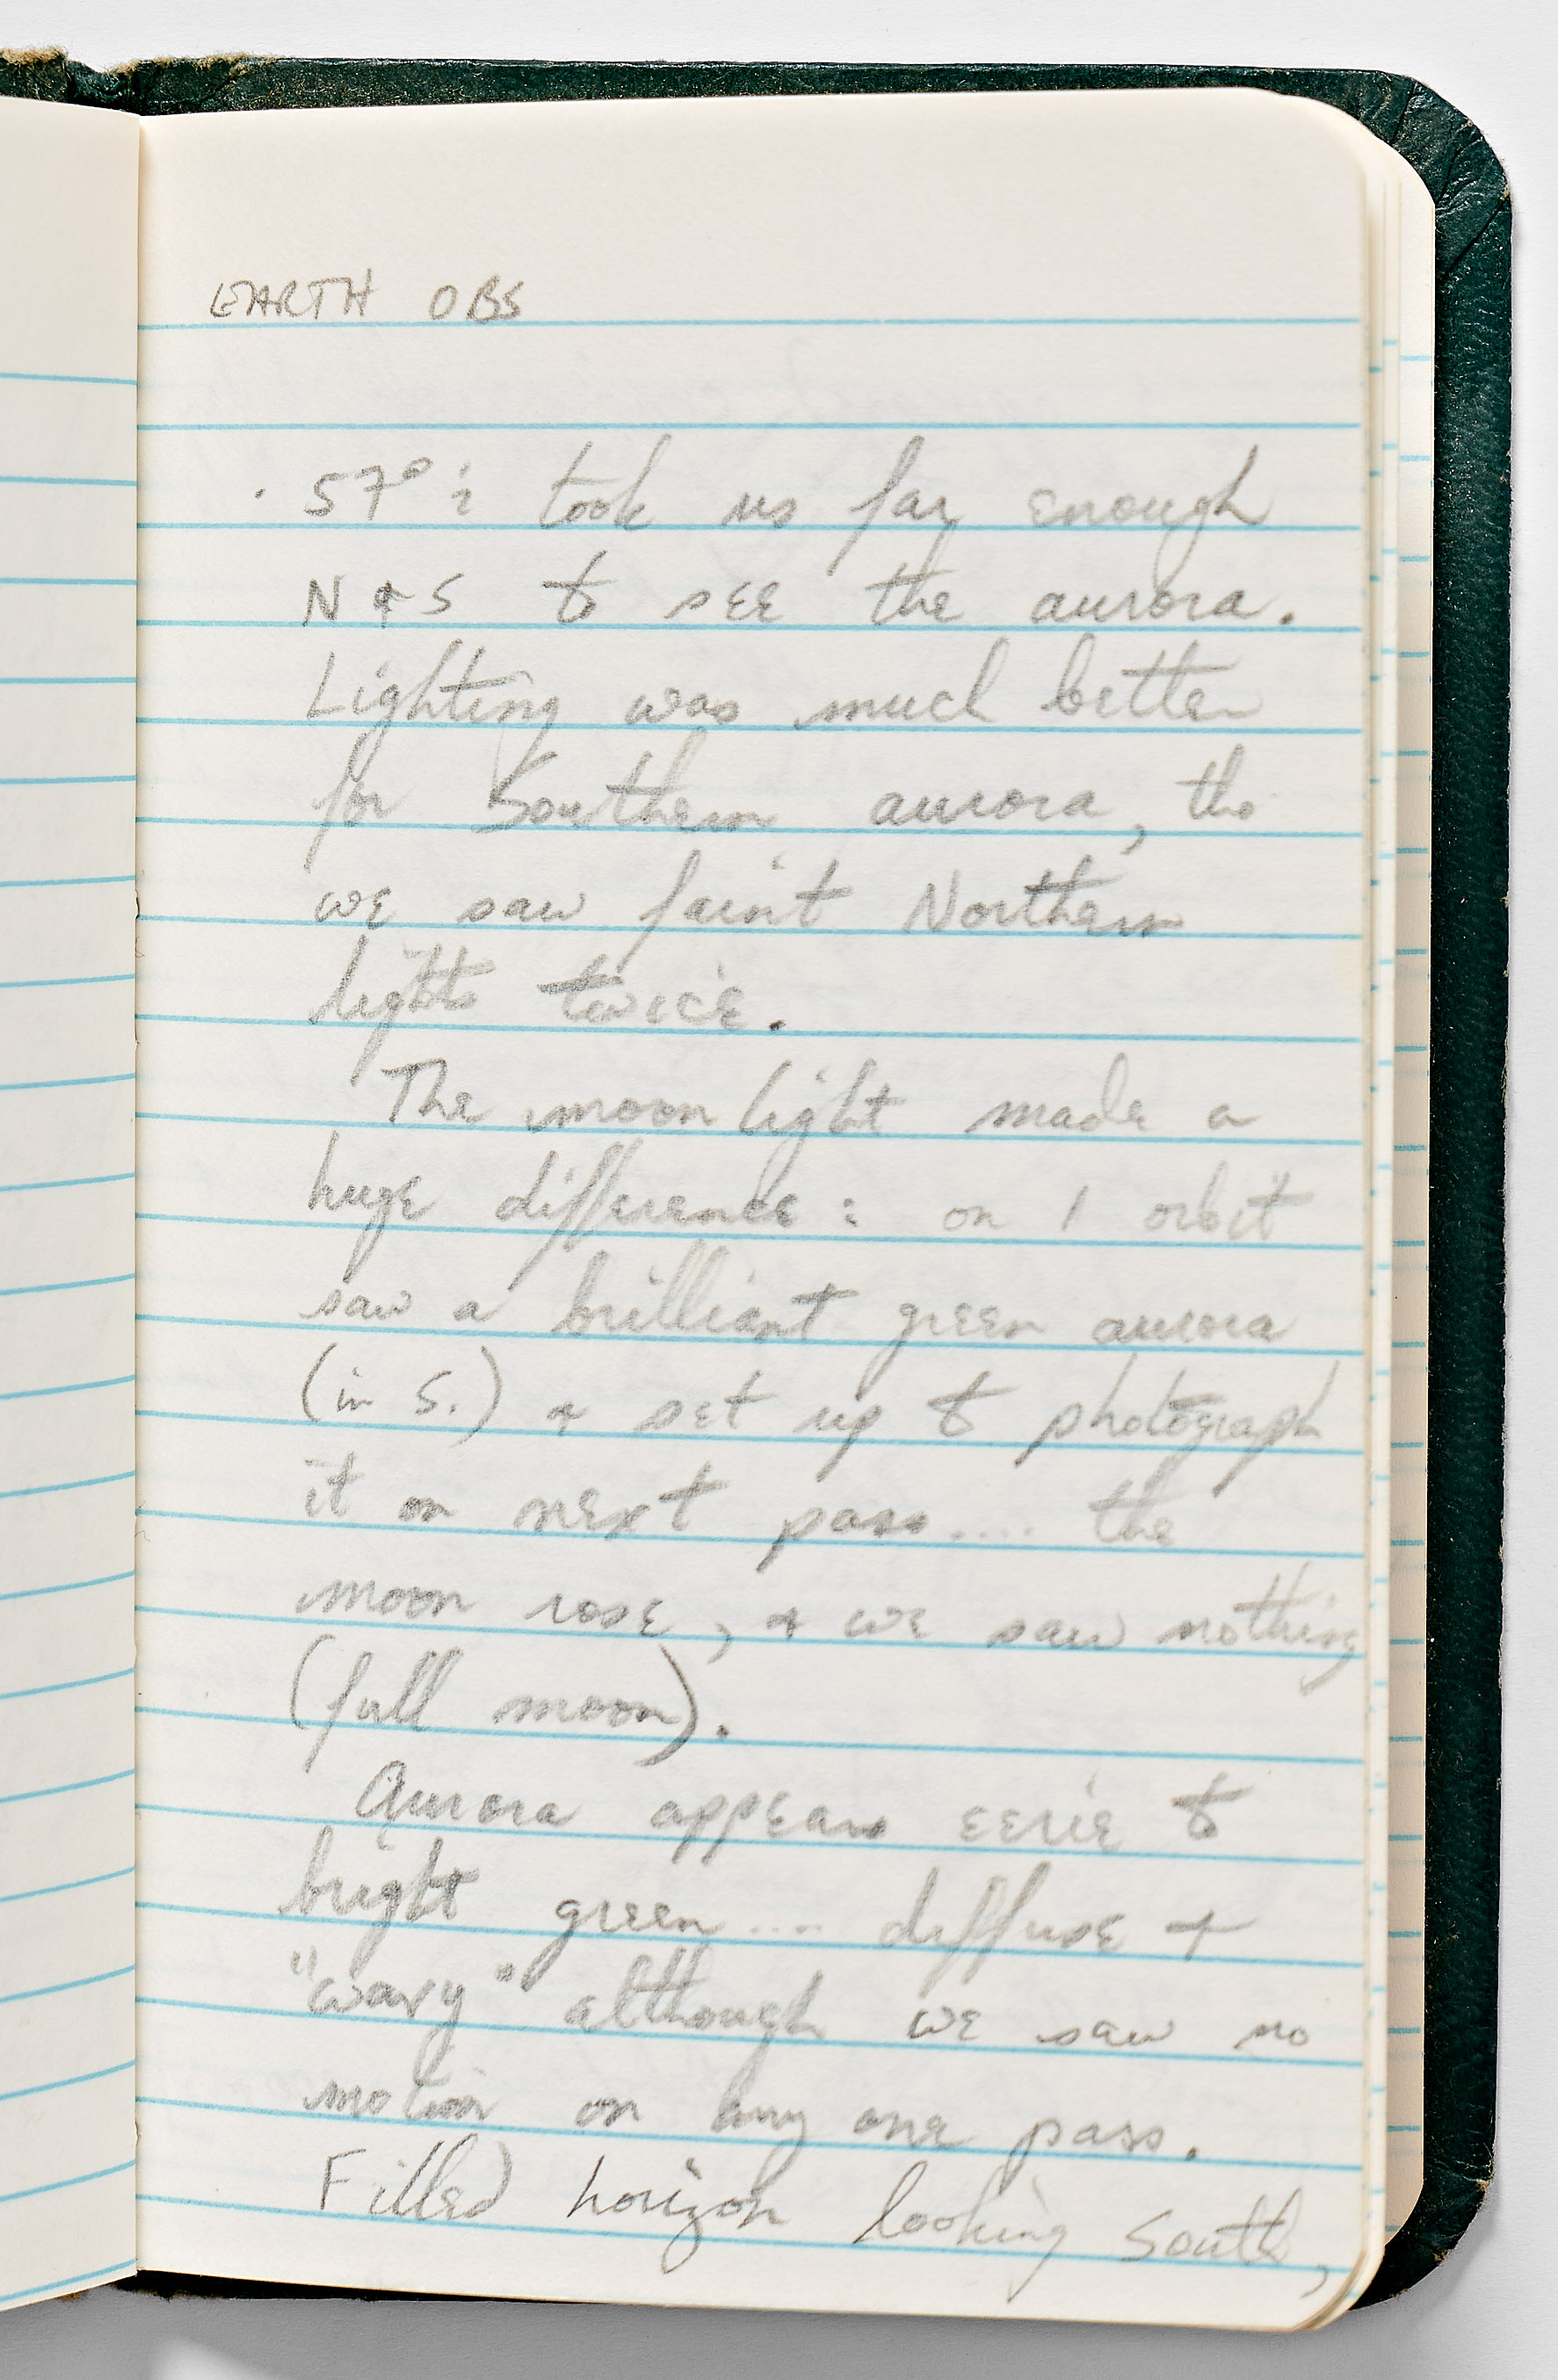 EARTH OBS
· 57° i took us far enough
N & S to see the aurora.
Lighting was much better
for Southern aurora, tho
we saw faint Northern
lights twice.
The moonlight made a
huge difference: on 1 orbit
saw a brilliant green aurora
(in S.) & set up to photograph
it on next pass.... the
moon rose, & we saw nothing
(full moon).
Aurora appears eerie to
bright green.... diffuse +
"wavy" although we saw no
motion on any one pass.
Filled horizon looking South,